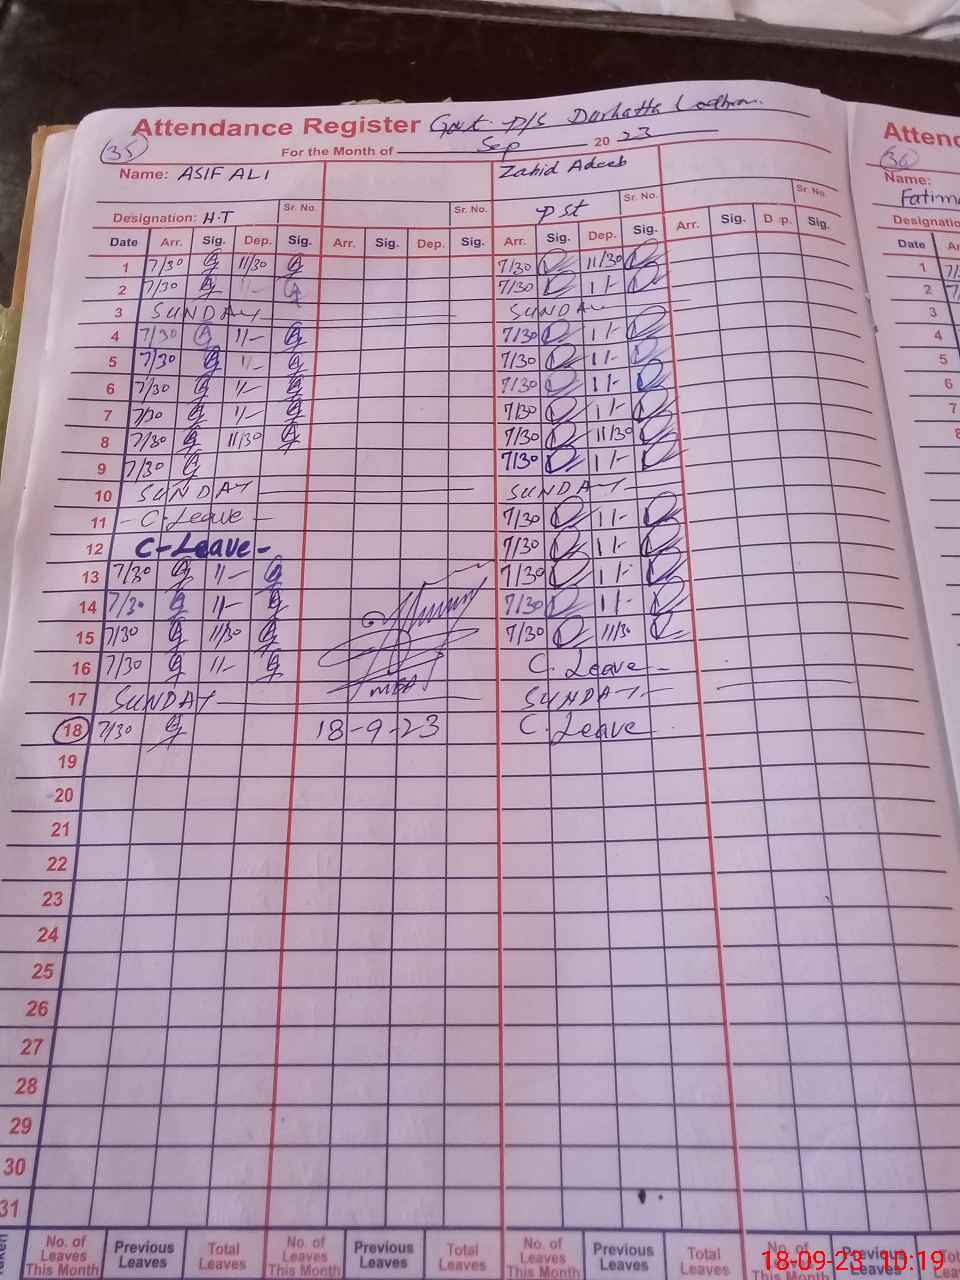 Attendance Register Govt. P/S Durhatta Lodhran.
35
For the Month of Sep 20 23
Name: ASIF ALI Zahid Adeeb
Designation: H.T Sr. No. Sr. No. PST Sr. No. Sr. No.
Date Arr. Sig. Dep. Sig. Arr. Sig. Dep. Sig. Arr. Sig. Dep. Sig. Arr. Sig. D p. Sig.
1 7/30 11/30 7/30 11/30
2 7/30 11- 7/30 11-
3 SUNDAY SUNDAY
4 7/30 11- 7/30 11-
5 7/30 11- 7/30 11-
6 7/30 11- 7/30 11-
7 7/30 11- 7/30 11-
8 7/30 11/30 7/30 11/30
9 7/30 7/30 11-
10 SUNDAY SUNDAY
11 - C. Leave - 7/30 11-
12 C-Leave- 7/30 11-
13 7/30 11- 7/30 11-
14 7/30 11- 7/30 11-
15 7/30 11/30 7/30 11/30
16 7/30 11- C. Leave -
17 SUNDAY SUNDAY
18 7/30 18-9-23 C. Leave
19
20
21
22
23
24
25
26
27
28
29
30
31
No. of Leaves This Month Previous Leaves Total Leaves No. of Leaves This Month Previous Leaves Total Leaves No. of Leaves This Month Previous Leaves Total Leaves No. of Leaves This Month Previous Leaves Total Leaves
Attend
36
Name:
Fatima
Designatio
Date
1
2
3
4
5
6
7
8
18-09-23 10:19